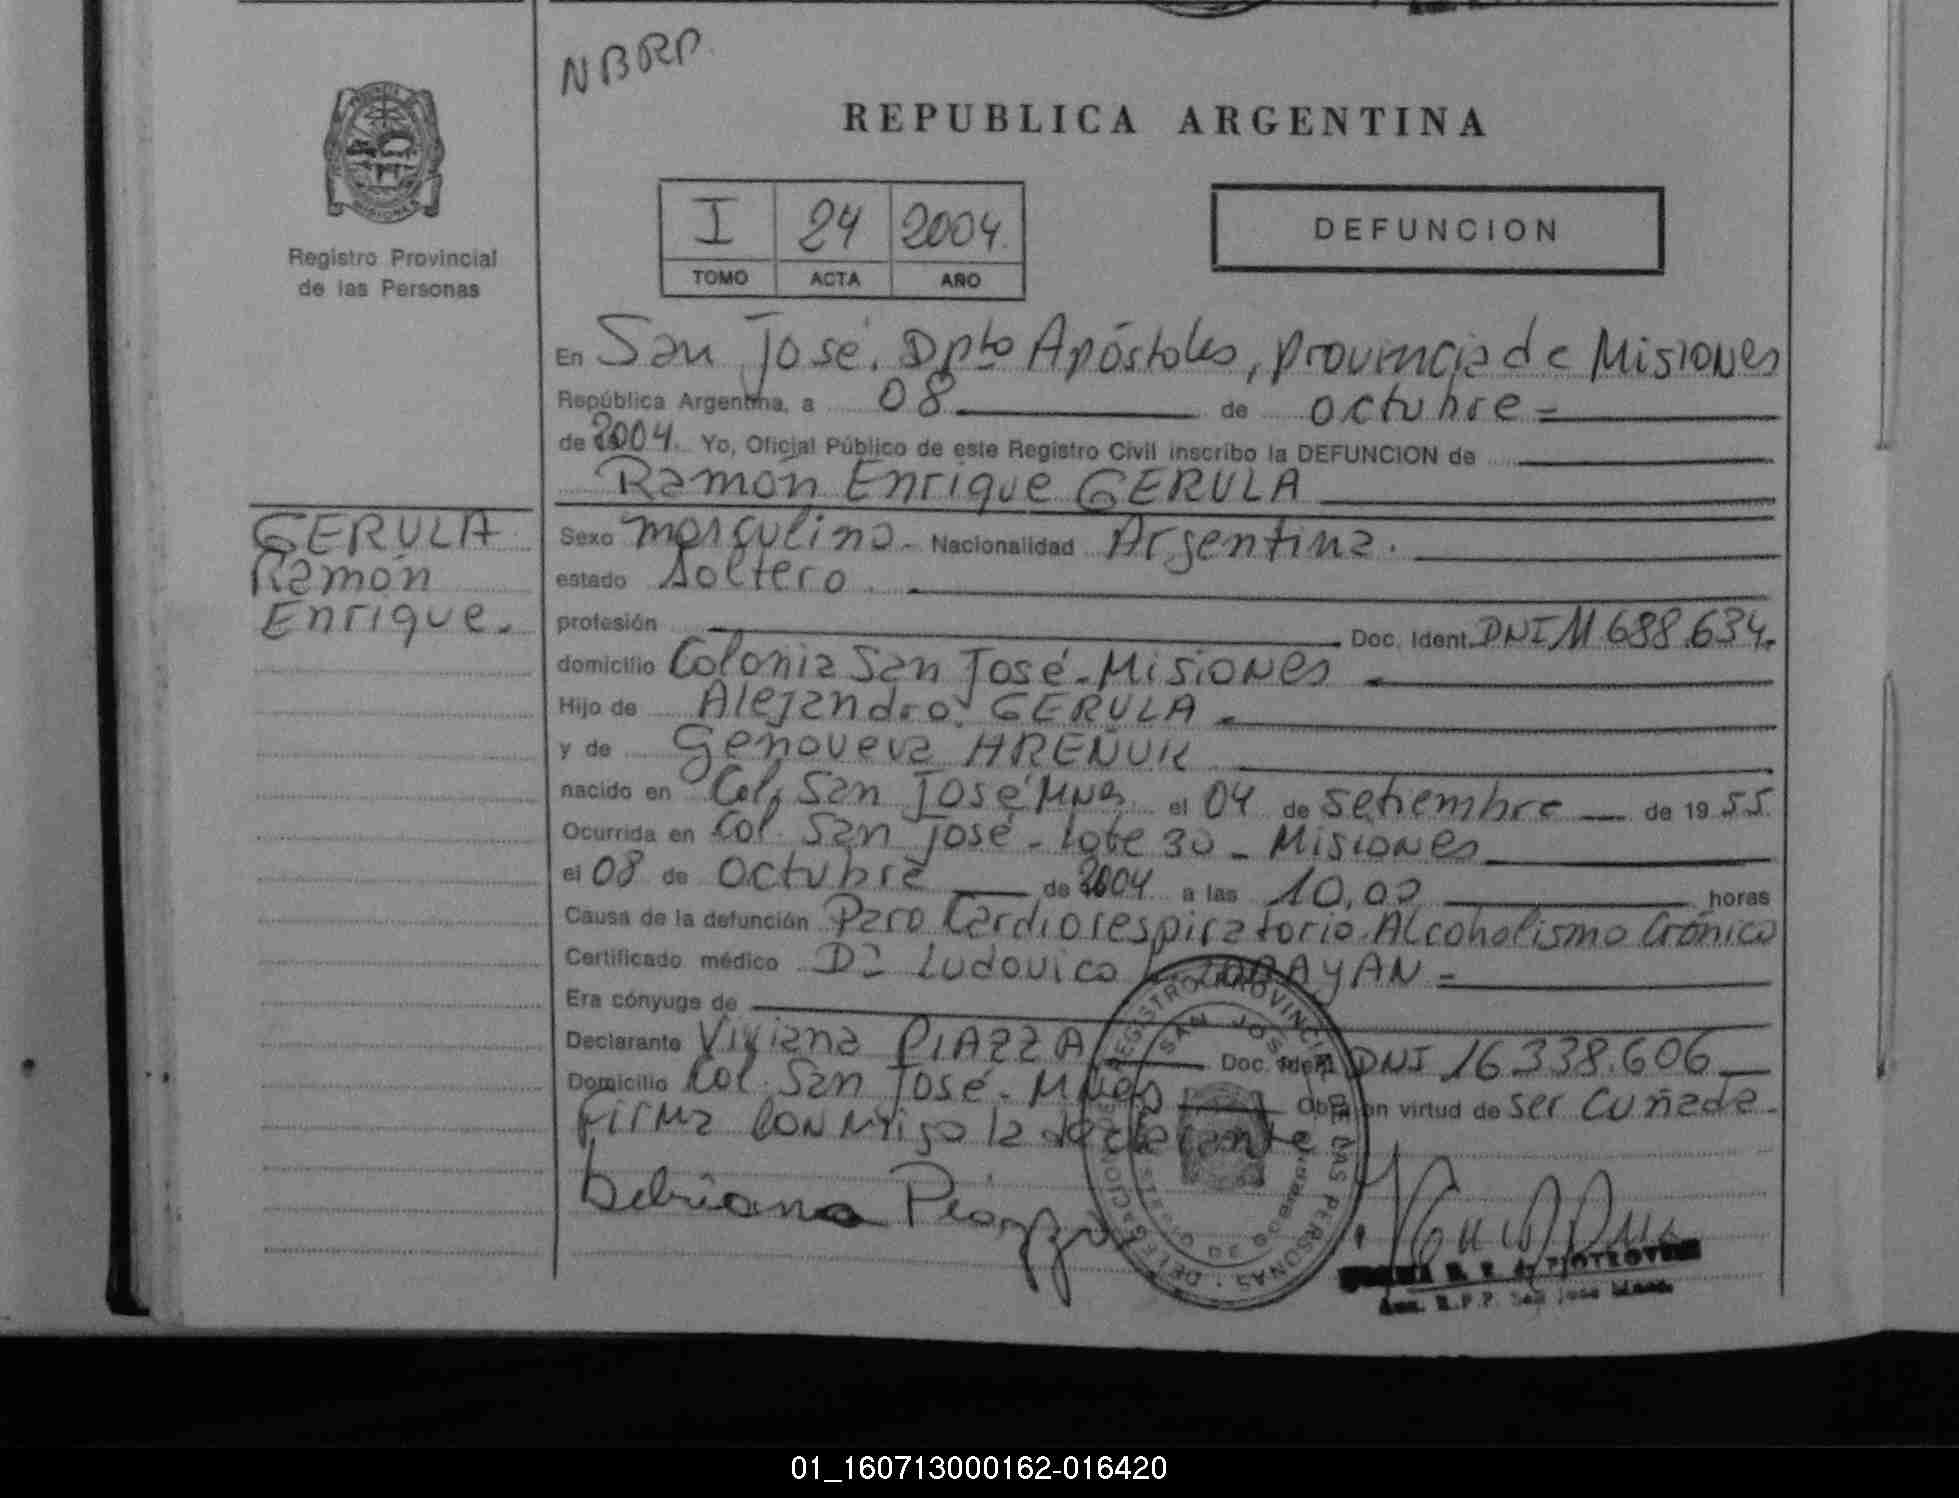 NBRP.
REPUBLICA ARGENTINA
PROVINCIA DE MISIONES
Registro Provincial
de las Personas
I 24 2004.
TOMO ACTA AÑO
DEFUNCION
En San José. Dpto Apóstoles, provincia de Misiones
República Argentina, a 08 de octubre =
de 2004. Yo, Oficial Público de este Registro Civil inscribo la DEFUNCION de
Ramón Enrique GERULA
GERULA
Ramón
Enrique.
Sexo masculino - Nacionalidad Argentina.
estado soltero.
profesión Doc. Ident. DNI 11.688.634.
domicilio Colonia San José - Misiones
Hijo de Alejandro GERULA
y de Genoveva HREÑUK
nacido en Col. San José Mnes el 04 de setiembre de 19 55.
Ocurrida en Col. San José - Lote 30 - Misiones
el 08 de octubre de 2004 a las 10,00 horas
Causa de la defunción Paro Cardiorespiratorio. Alcoholismo Crónico
Certificado médico Dr Ludovico
Era cónyuge de
Declarante Viviana PIAZZA Doc. Ident. DNI 16.338.606
Domicilio Col. San José - Mnes Obra en virtud de ser cuñada.
Firma conmigo la declarante
Piazza
REGISTRO PROVINCIAL DE LAS PERSONAS · DELEGACION
SAN JOSE
San José
01_160713000162-016420